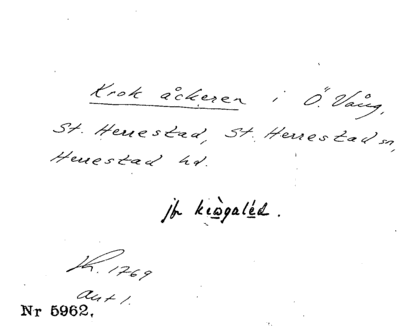 Krok åckeren i Ö. Vång,
St. Herrestad, St. Herrestad sn,
Herrestad hd.
jfr
1769
akt 1.
Nr 5962.